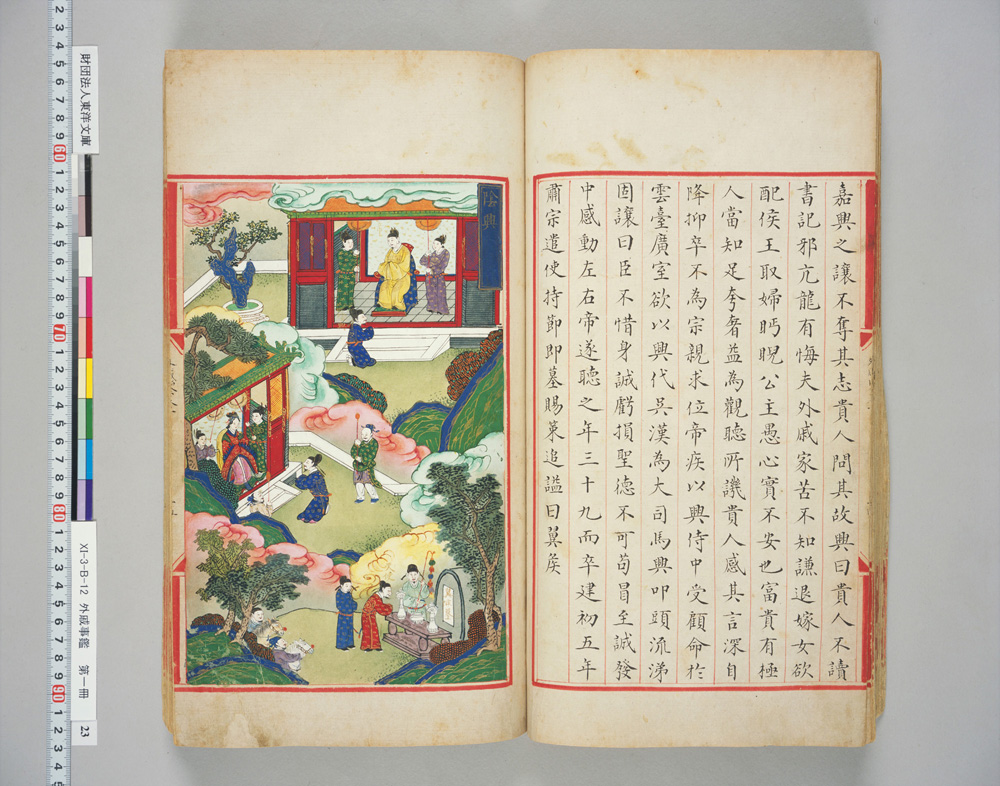 嘉興之讓不奪其志貴人問其故興曰貴人不讀
書記邪亢龍有悔夫外戚家苦不知謙退嫁女欲
配侯王取婦眄睨公主愚心實不安也富貴有極
人當知足夸奢益為觀聽所譏貴人感其言深自
降抑卒不為宗親求位帝疾以興侍中受顧命於
雲臺廣室欲以興代吳漢為大司馬興叩頭流涕
固讓曰臣不惜身誠虧損聖德不可茍冒至誠發
中感動左右帝遂聽之年三十九而卒建初五年
肅宗遣使持節即墓賜策追謚曰翼矦
陰興
財団法人東洋文庫
XI-3-B-12 外戚事鑑 第一冊
23
2 3 4 5 6 7 8 9 60 1 2 3 4 5 6 7 8 9 70 1 2 3 4 5 6 7 8 9 80 1 2 3 4 5 6 7 8 9 90 1 2 3 4 5